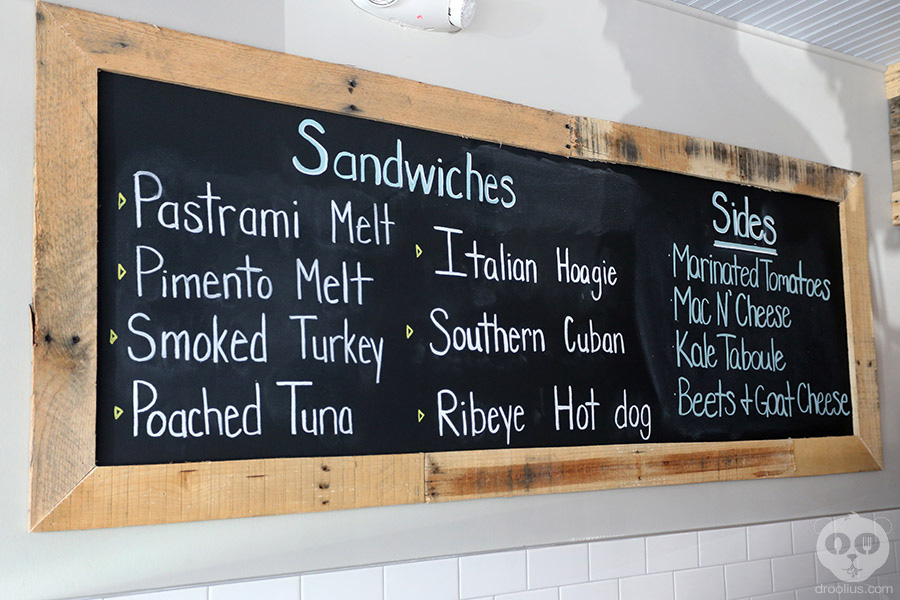 Sandwiches
Pastrami Melt
Pimento Melt
Smoked Turkey
Poached Tuna
Italian Hoagie
Southern Cuban
Ribeye Hot dog
Sides
Marinated Tomatoes
Mac N' Cheese
Kale Taboule
Beets & Goat Cheese
droolius.com